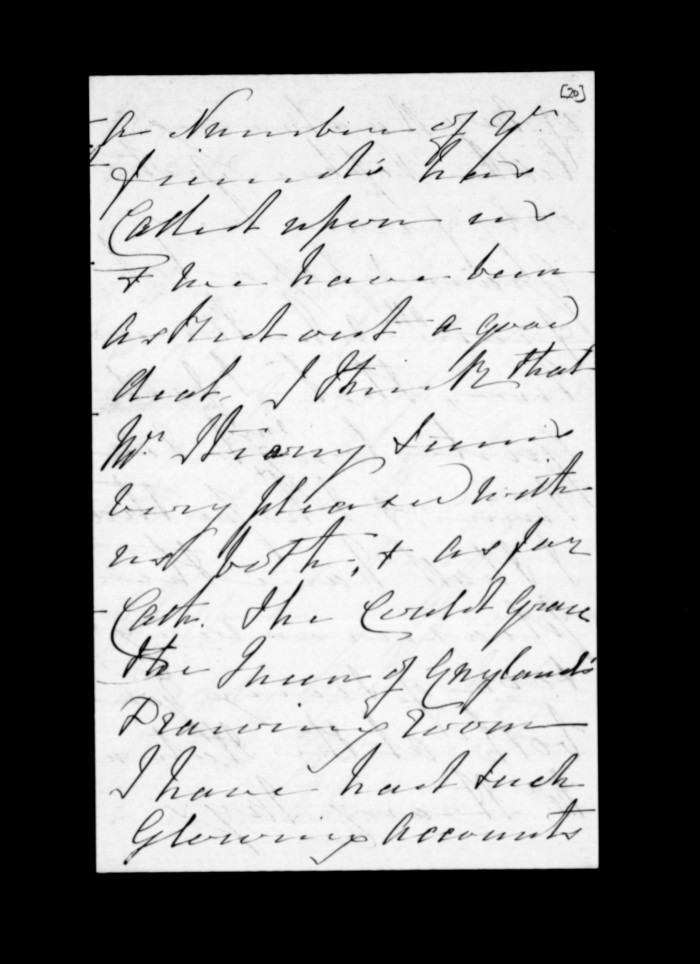 [20]
a Number of Yr
friends has
Called upon us
& we have been
asked out a good
deal, I think that
Mr. Strang seems
very pleased with
us both, & as for
Cath. She Could Grace
the Queen of England's
Drawing room
I have had such
Glowing Accounts